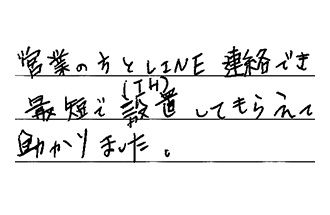 営業の方とLINE連絡でき
最短で(IH)設置してもらえて
助かりました。